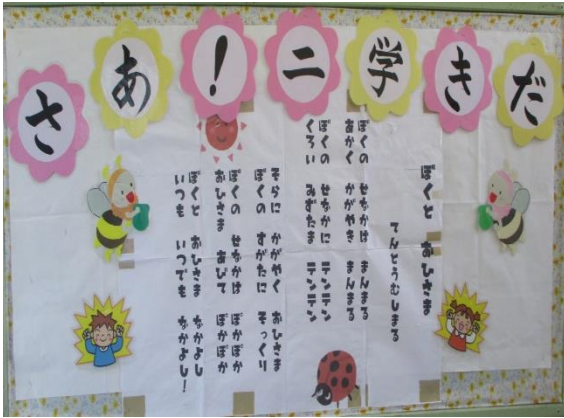 さあ！二学きだ
ぼくと おひさま
てんとうむしまる
ぼくの せなかは まんまる
あかく かがやき まんまる
ぼくの せなかに テンテン
くろい みずたま テンテン
そらに かがやく おひさま
ぼくの すがたに そっくり
ぼくの せなかは ぽかぽか
おひさま あびて ぽかぽか
ぼくと おひさま なかよし
いつも いつでも なかよし！